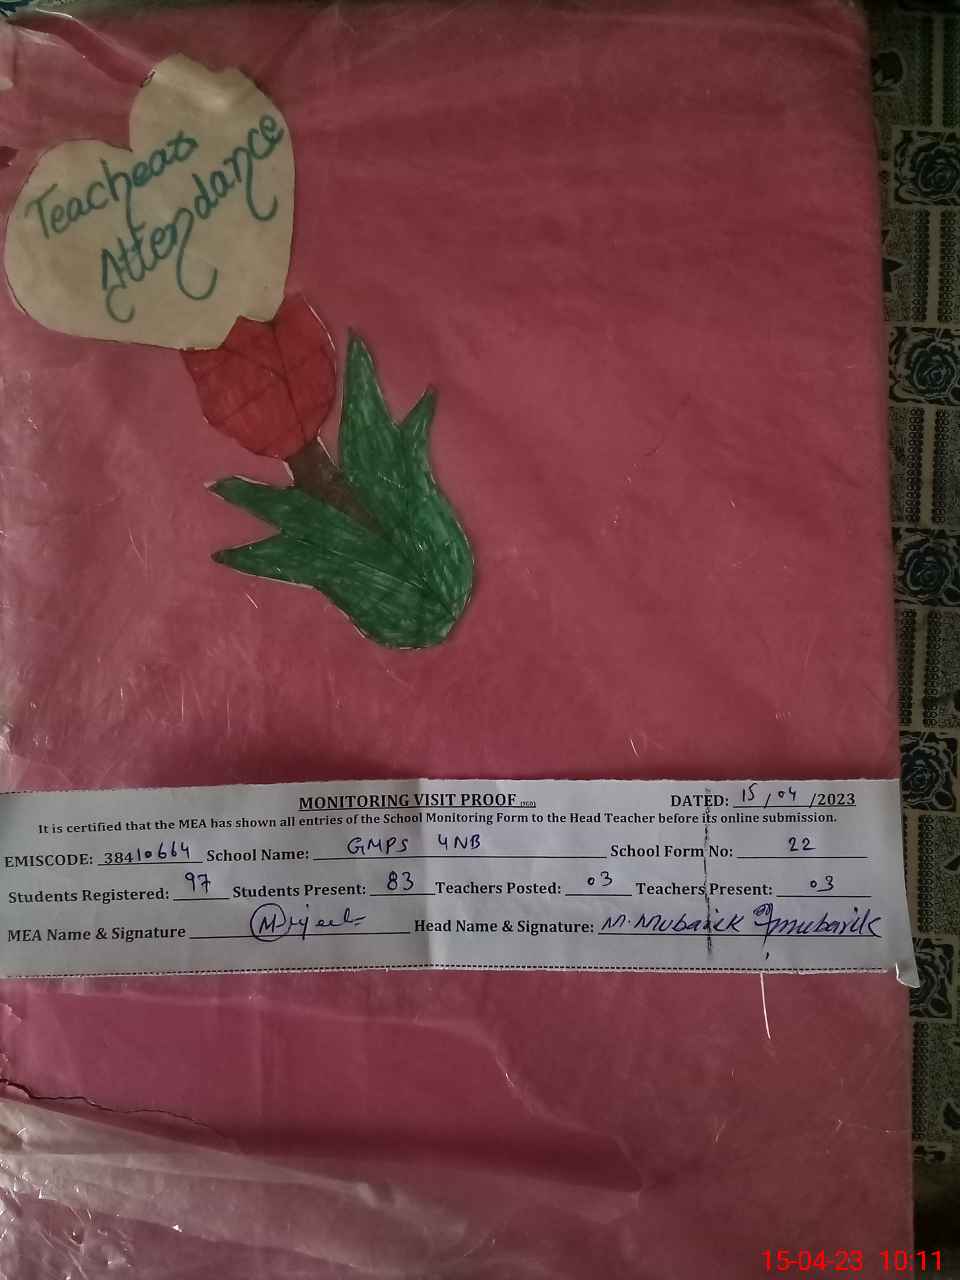 Teachears
Attendance
MONITORING VISIT PROOF
DATED: 15/04/2023
It is certified that the MEA has shown all entries of the School Monitoring Form to the Head Teacher before its online submission.
EMISCODE: 38410664 School Name: GMPS 4NB School Form No: 22
Students Registered: 97 Students Present: 83 Teachers Posted: 03 Teachers Present: 03
MEA Name & Signature Head Name & Signature: M. Mubarick mubarik
15-04-23 10:11